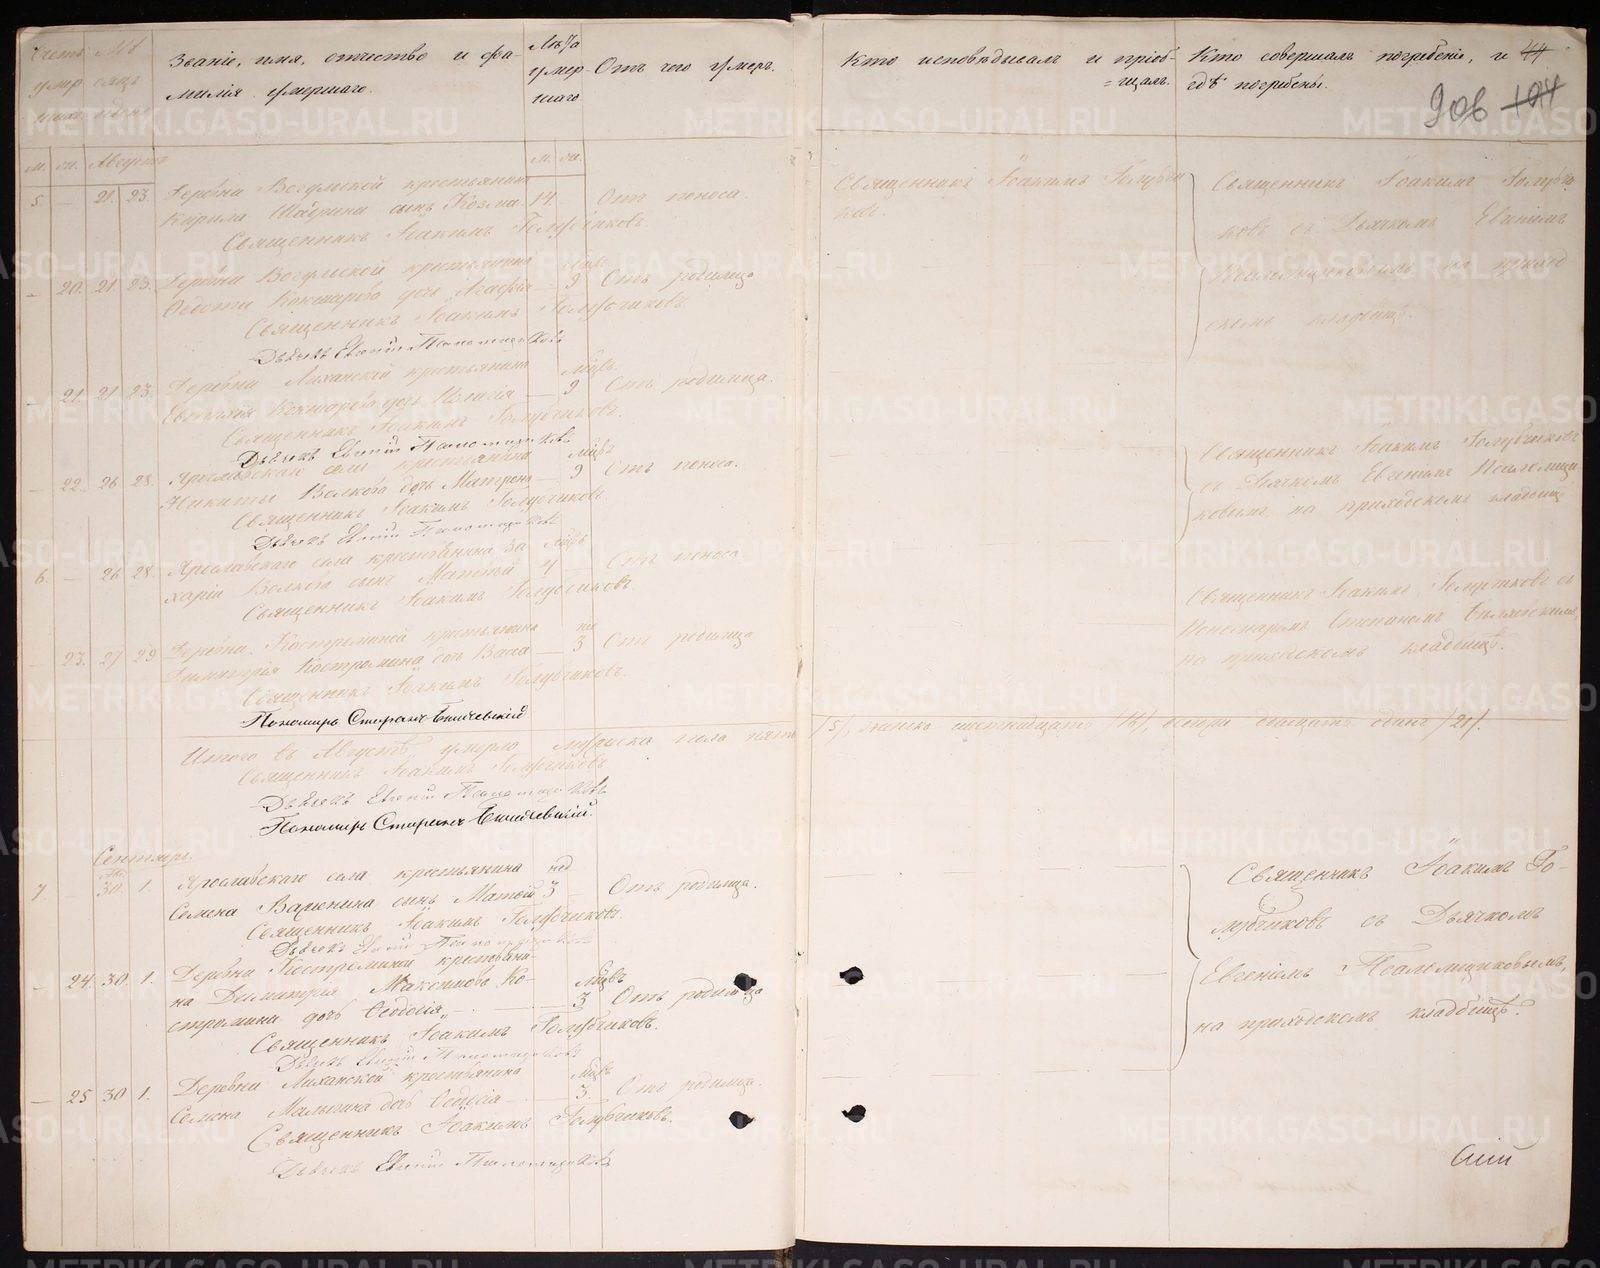 Счетъ умершихъ
Мѣсяцъ и день
Званіе, имя, отчество и фамилія умершаго.
Лѣта умершаго
Отъ чего умеръ.
Кто исповѣдывалъ и пріобщалъ.
Кто совершалъ погребеніе, и гдѣ погребены.
44
90б 194
м. ж. Августъ м. ж.
5 — 21. 23. Деревни Вогульской крестьянина
Кирила сынъ Козма 14 Отъ поноса.
Священникъ Іоакимъ Голубчиковъ.
Священникъ Іоакимъ Голубчиковъ.
Священникъ Іоакимъ Голубчиковъ съ Дьячкомъ Евгеніемъ
Псаломщиковымъ на приходскомъ кладбищѣ.
— 20. 21. 23. Деревни Вогульской крестьянина мѣс.
Федота Кокшарова дочь Агафія — 9 Отъ родимца
Священникъ Іоакимъ Голубчиковъ
Дьячекъ Евгеній Псаломщиковъ
— 21. 21 23. Деревни Лиханской крестьянина мѣс.
Кокшарова дочь — 9 Отъ родимца.
Священникъ Іоакимъ Голубчиковъ.
Дьячекъ Евгеній Псаломщиковъ
— 22. 26 28. Ярославскаго села крестьянина мѣс.
Никиты Волкова дочь Матрона — 9 Отъ поноса.
Священникъ Іоакимъ Голубчиковъ
Дьячекъ Евгеній Псаломщиковъ
Священникъ Іоакимъ Голубчиковъ
съ Дьячкомъ Евгеніемъ Псаломщиковымъ на приходскомъ кладбищѣ
6. — 26 28. Ярославскаго села крестьянина За-
харіи Волкова сынъ Матѳей Отъ поноса
Священникъ Іоакимъ Голубчиковъ.
— 23. 27 29 Деревни Костроминой крестьянина нед
Димитрія Костромина дочь Васса — 3 Отъ родимца
Священникъ Іоакимъ Голубчиковъ.
Пономарь Стефанъ
Священникъ Іоакимъ Голубчиковъ съ
Пономаремъ Стефаномъ
на приходскомъ кладбищѣ.
Итого въ Августѣ умерло мужеска пола пять /5/, женска шестнадцать /16/, обоего двадцать одинъ /21/.
Священникъ Іоакимъ Голубчиковъ
Дьячекъ Евгеній Псаломщиковъ
Пономарь Стефанъ
Сентябрь.
7. — 30. 1. Ярославскаго села крестьянина нед
Семена сынъ Матѳей 3 — Отъ родимца.
Священникъ Іоакимъ Голубчиковъ.
Дьячекъ Евгеній Псаломщиковъ
Священникъ Іоакимъ Го-
лубчиковъ съ Дьячкомъ
Евгеніемъ Псаломщиковымъ,
на приходскомъ кладбищѣ.
— 24. 30. 1. Деревни Костроминой крестьяни-
на Димитрія Максимова Ко- мѣсъ
стромина дочь Ѳеодосія — 3 Отъ родимца
Священникъ Іоакимъ Голубчиковъ.
Дьячекъ Евгеній Псаломщиковъ
— 25 30 1. Деревни Лиханской крестьянина мѣсъ
Семена Малыгина дочь Ѳеодосія — 3. Отъ родимца.
Священникъ Іоакимъ Голубчиковъ.
Дьячекъ Евгеній Псаломщиковъ
METRIKI.GASO-URAL.RU